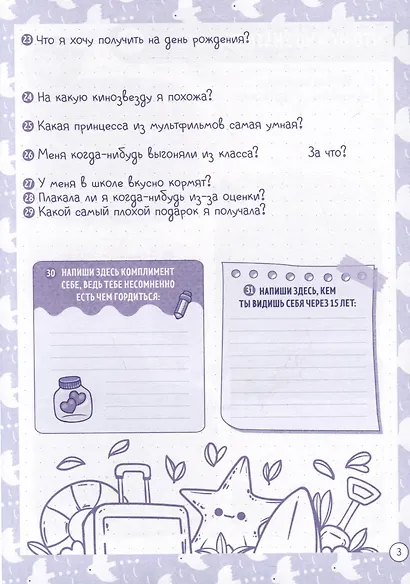 23 Что я хочу получить на день рождения?
24 На какую кинозвезду я похожа?
25 Какая принцесса из мультфильмов самая умная?
26 Меня когда-нибудь выгоняли из класса? За что?
27 У меня в школе вкусно кормят?
28 Плакала ли я когда-нибудь из-за оценки?
29 Какой самый плохой подарок я получала?
30 НАПИШИ ЗДЕСЬ КОМПЛИМЕНТ
СЕБЕ, ВЕДЬ ТЕБЕ НЕСОМНЕННО
ЕСТЬ ЧЕМ ГОРДИТЬСЯ:
31 НАПИШИ ЗДЕСЬ, КЕМ
ТЫ ВИДИШЬ СЕБЯ ЧЕРЕЗ 15 ЛЕТ:
3